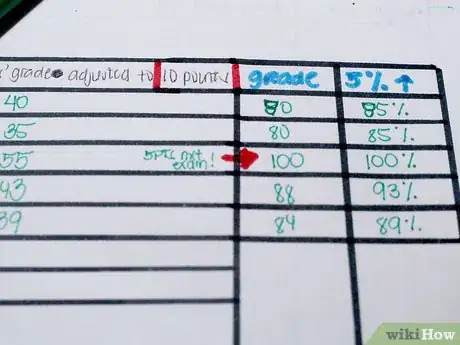 grade adjusted to 10 points grade 5% ↑
40 80 85%
35 80 85%
55 5pts nxt exam! 100 100%
43 88 93%
39 84 89%
wikiHow